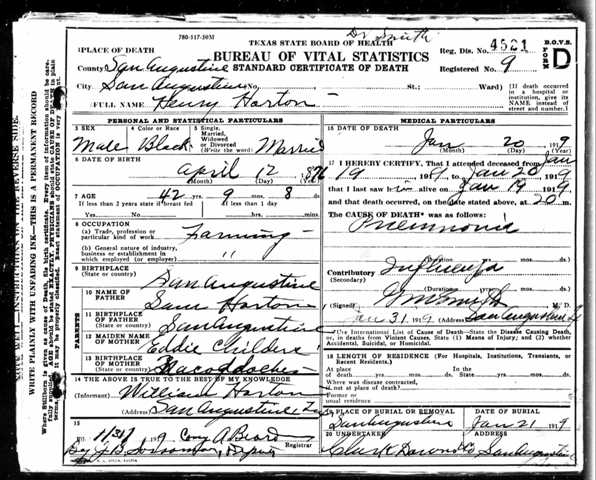 Dr Smith
780-117-30M
TEXAS STATE BOARD OF HEALTH
BUREAU OF VITAL STATISTICS
STANDARD CERTIFICATE OF DEATH
Reg. Dis. No. 4521
Registered No. 9
B.O.V.S.
FORM D
PLACE OF DEATH
County San Augustine
City San Augustine No. St.: Ward)
[If death occurred in a hospital or institution, give its NAME instead of street and number.]
FULL NAME Henry Horton
PERSONAL AND STATISTICAL PARTICULARS
3 SEX
Male
4 Color or Race
Black
5 Single, Married, Widowed or Divorced (Write the word)
Married
6 DATE OF BIRTH
April 12 1876
(Month) (Day) (Year)
7 AGE 42 9 8 ds.
If less than 2 years state if breast fed If less than 1 day
Yes No hrs. min.
8 OCCUPATION
(a) Trade, profession or particular kind of work Farming
(b) General nature of industry, business or establishment in which employed (or employer) "
9 BIRTHPLACE
(State or country) San Augustine
PARENTS
10 NAME OF FATHER Sam Horton
11 BIRTHPLACE OF FATHER
(State or country) San Augustine
12 MAIDEN NAME OF MOTHER Eddie Childers
13 BIRTHPLACE OF MOTHER
(State or country) Nacogdoches
14 THE ABOVE IS TRUE TO THE BEST OF MY KNOWLEDGE
(Informant) William Horton
(Address) San Augustine
15
Registrar
MEDICAL PARTICULARS
16 DATE OF DEATH
Jan 20 1919
(Month) (Day) (Year)
17 I HEREBY CERTIFY, That I attended deceased from Jan
19 1919 to Jan 20 1919
that I last saw him alive on Jan 19 1919
and that death occurred, on the date stated above, at 20 m.
The CAUSE OF DEATH* was as follows:
Pneumonia
(Duration) yrs. mos. ds.
Contributory Influenza
(Secondary)
(Duration) yrs. mos. ds.
(Signed) Smith M. D.
Jan 31 1919 (Address) San Augustine
*Use International List of Cause of Death—State the Disease Causing Death, or, in deaths from Violent Causes, State (1) Means of Injury; and (2) whether Accidental, Suicidal, or Homicidal.
18 LENGTH OF RESIDENCE (For Hospitals, Institutions, Transients, or Recent Residents.)
At place of death yrs. mos. ds. In the State yrs. mos. ds.
Where was disease contracted, if not at place of death?
Former or usual residence
19 PLACE OF BURIAL OR REMOVAL
San Augustine
DATE OF BURIAL
Jan 21 1919
20 UNDERTAKER
ADDRESS
San Augustine
WRITE PLAINLY WITH UNFADING INK—THIS IS A PERMANENT RECORD